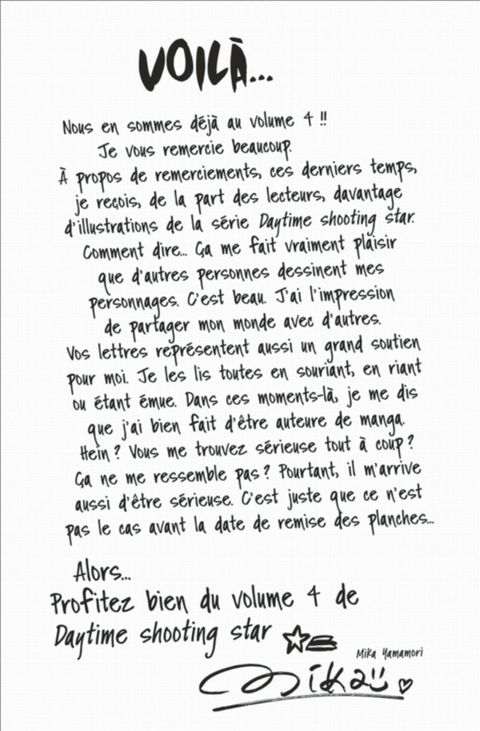 VOILÀ...
Nous en sommes déjà au volume 4 !!
Je vous remercie beaucoup.
À propos de remerciements, ces derniers temps,
je reçois, de la part des lecteurs, davantage
d'illustrations de la série Daytime shooting star.
Comment dire... Ça me fait vraiment plaisir
que d'autres personnes dessinent mes
personnages. C'est beau. J'ai l'impression
de partager mon monde avec d'autres.
Vos lettres représentent aussi un grand soutien
pour moi. Je les lis toutes en souriant, en riant
ou étant émue. Dans ces moments-là, je me dis
que j'ai bien fait d'être auteure de manga.
Hein ? Vous me trouvez sérieuse tout à coup ?
Ça ne me ressemble pas ? Pourtant, il m'arrive
aussi d'être sérieuse. C'est juste que ce n'est
pas le cas avant la date de remise des planches...
Alors...
Profitez bien du volume 4 de
Daytime shooting star
Mika Yamamori
Mika